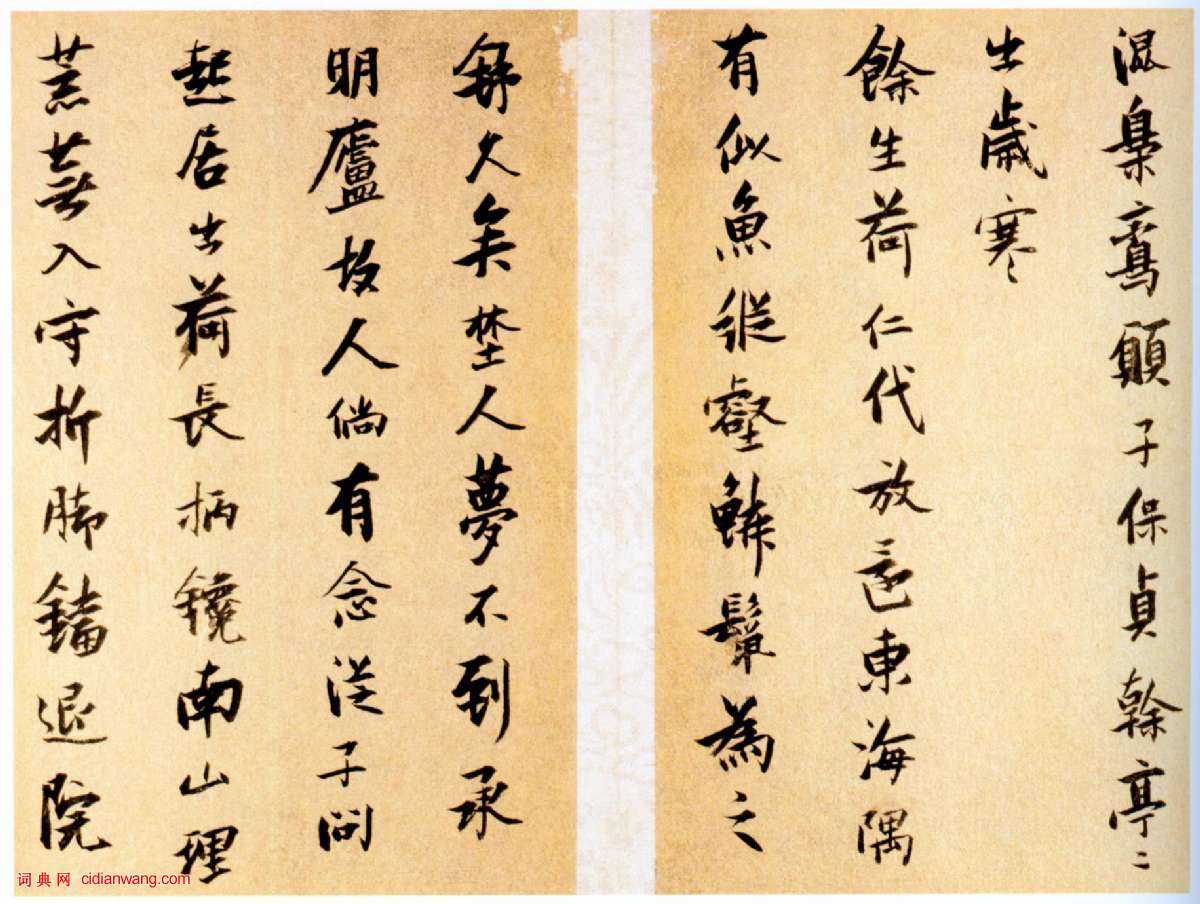 混梟鸞願子保貞幹亭〻
出歲寒
餘生荷仁代放還東海隅
有似魚縱壑鱗鬣為之
舒久矣埜人夢不到承
明廬故人倘有念從子問
起居出荷長柄鑱南山理
荒蕪入守折脚鐺退院
词典网 cidianwang.com